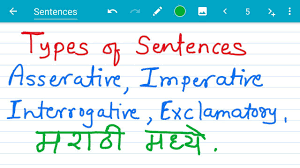 Sentences
5
Types of Sentences
Asserative, Imperative
Interrogative, Exclamatory.
मराठी मध्ये.